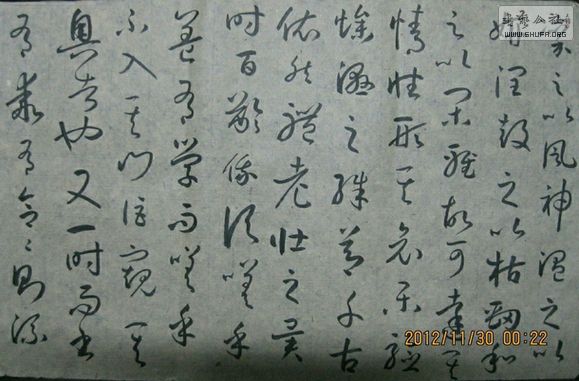 凜之以風神溫之以
妍潤鼓之以枯勁和
之以閑雅故可達其
情性形其哀樂驗
燥濕之殊節千古
依然體老壯之異
時百齡俄頃嗟乎
蓋有學而嗟乎
不入其門詎窺其
奧者也又一時而書
有乖有合合則流
WWW.SHUFA.ORG
2012/11/30 00:22